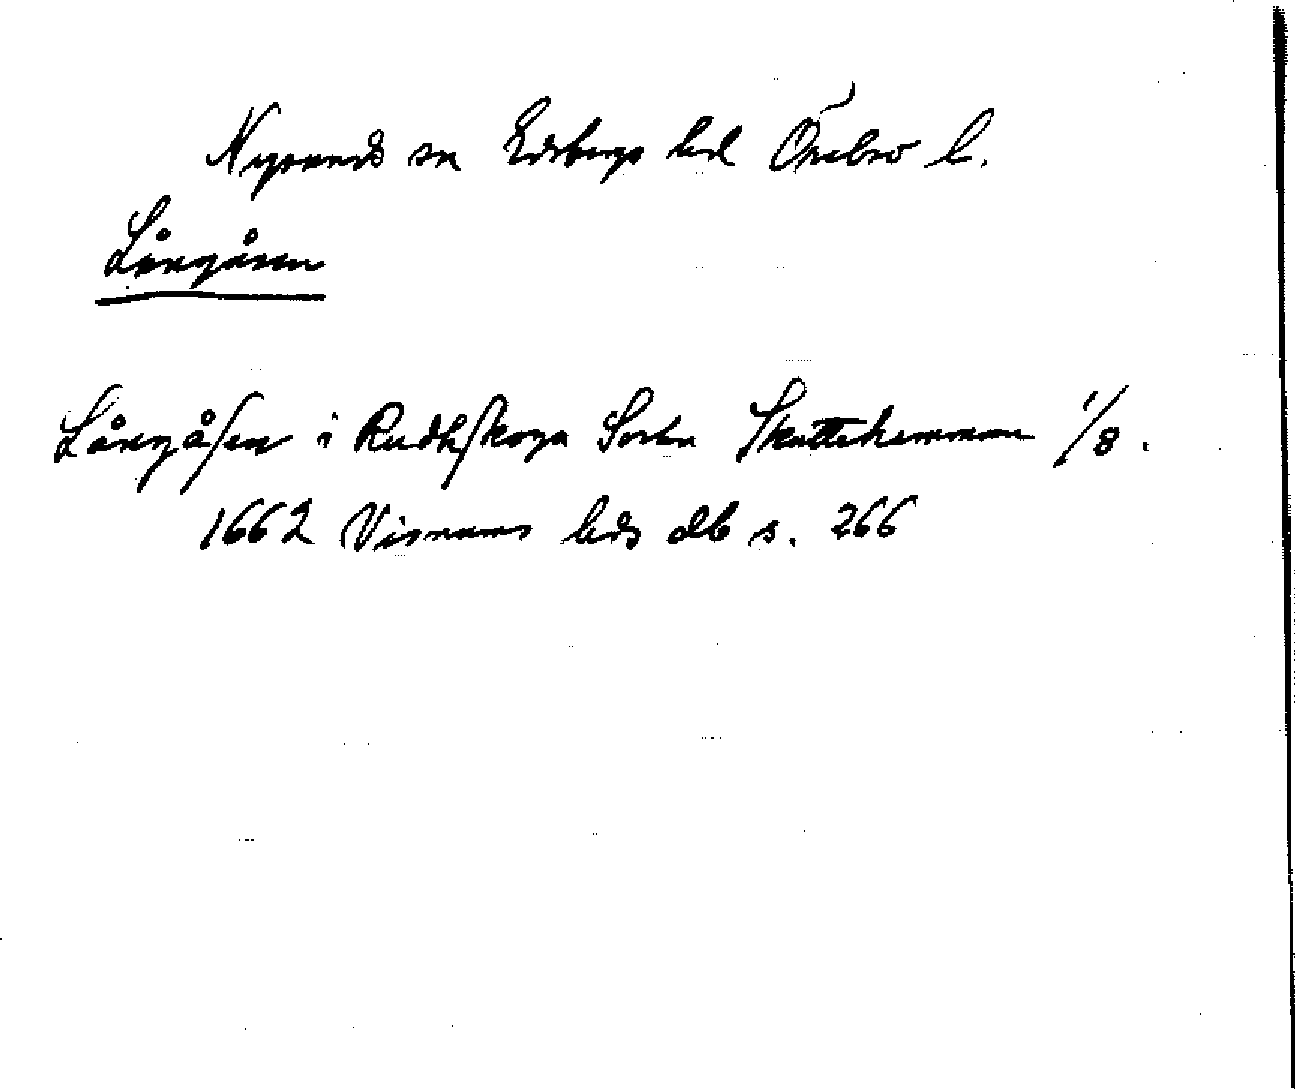 Nysunds sn Edsbergs hd Örebro l.
Långåsen
Långåsen i Rudhskoga Sokn Skattehemman 1/8.
1662 Visnums hds db s. 266